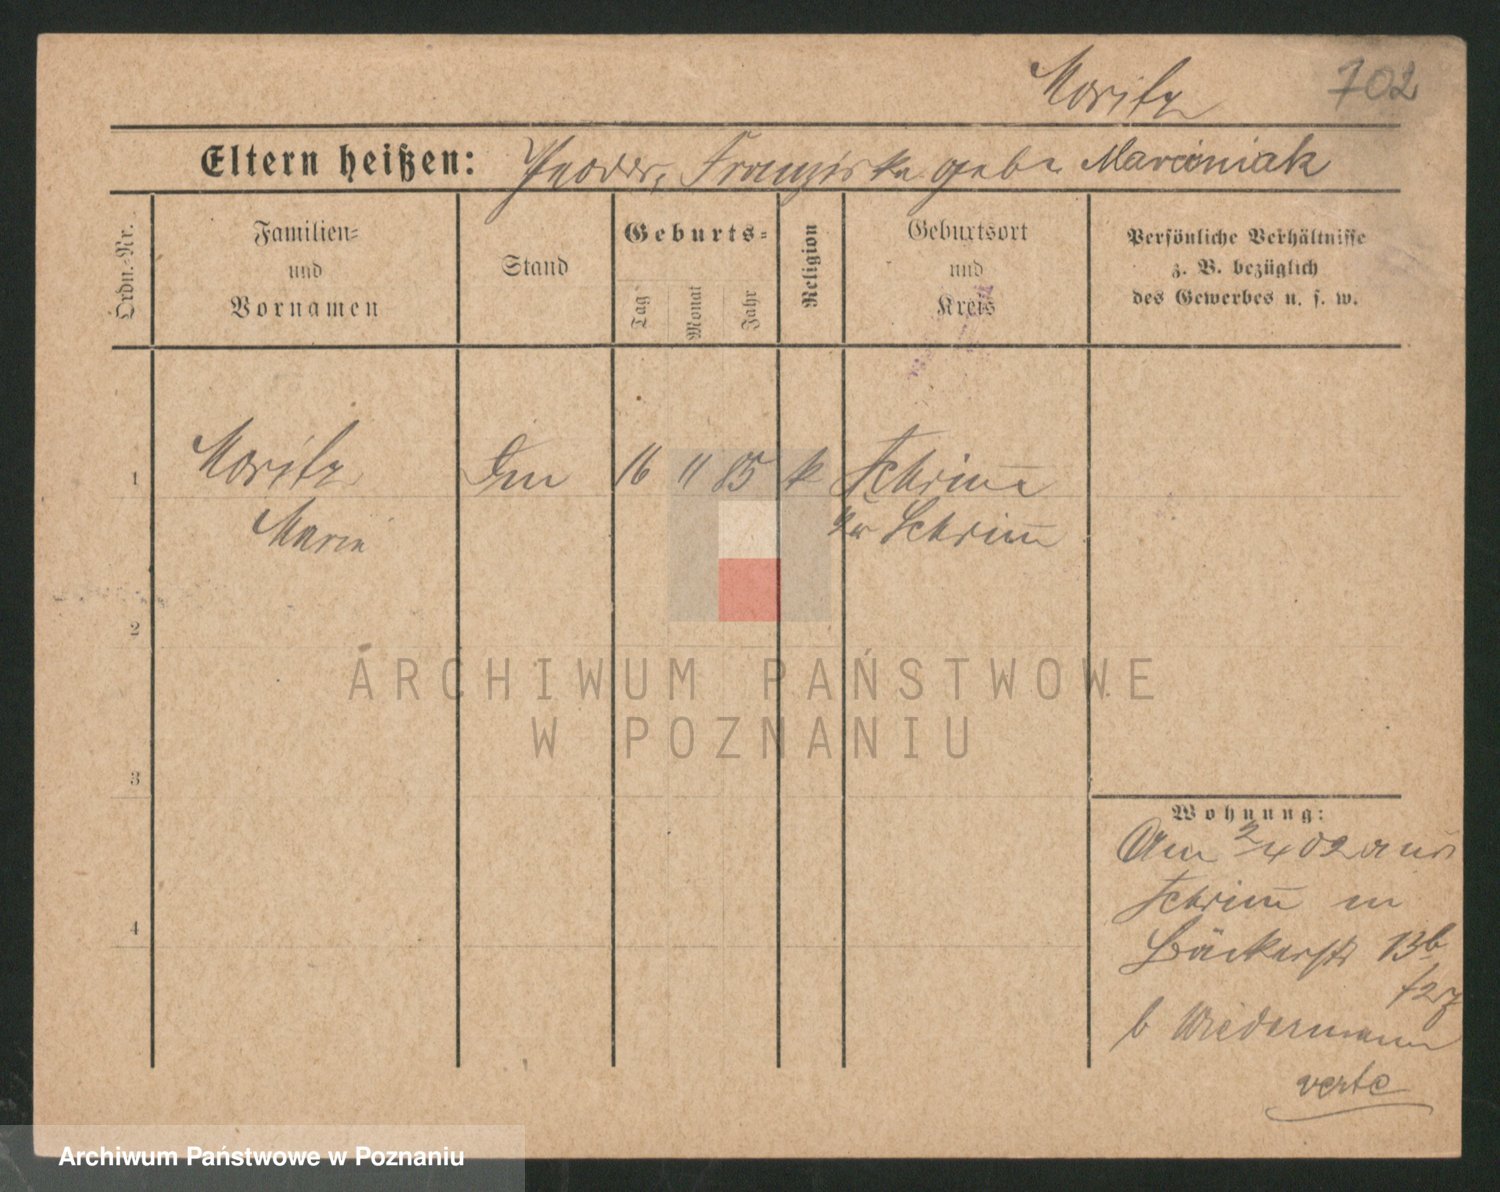 Moritz 702
Eltern heißen: Theodor, Franziska geb. Marciniak
Ordn.-Nr.
Familien-
und
Vornamen
Stand
Geburts-
Tag
Monat
Jahr
Religion
Geburtsort
und
Kreis
Persönliche Verhältnisse
z. B. bezüglich
des Gewerbes u. s. w.
1 Moritz 16 11 85 k Schrim̅
Marie Kr Schrim̅
2
3
4
Wohnung:
Am 2/4 02 aus
Schrim̅ in
Bäckerstr 13b
b Wiedermann
verte
ARCHIWUM PAŃSTWOWE
W POZNANIU
Archiwum Państwowe w Poznaniu